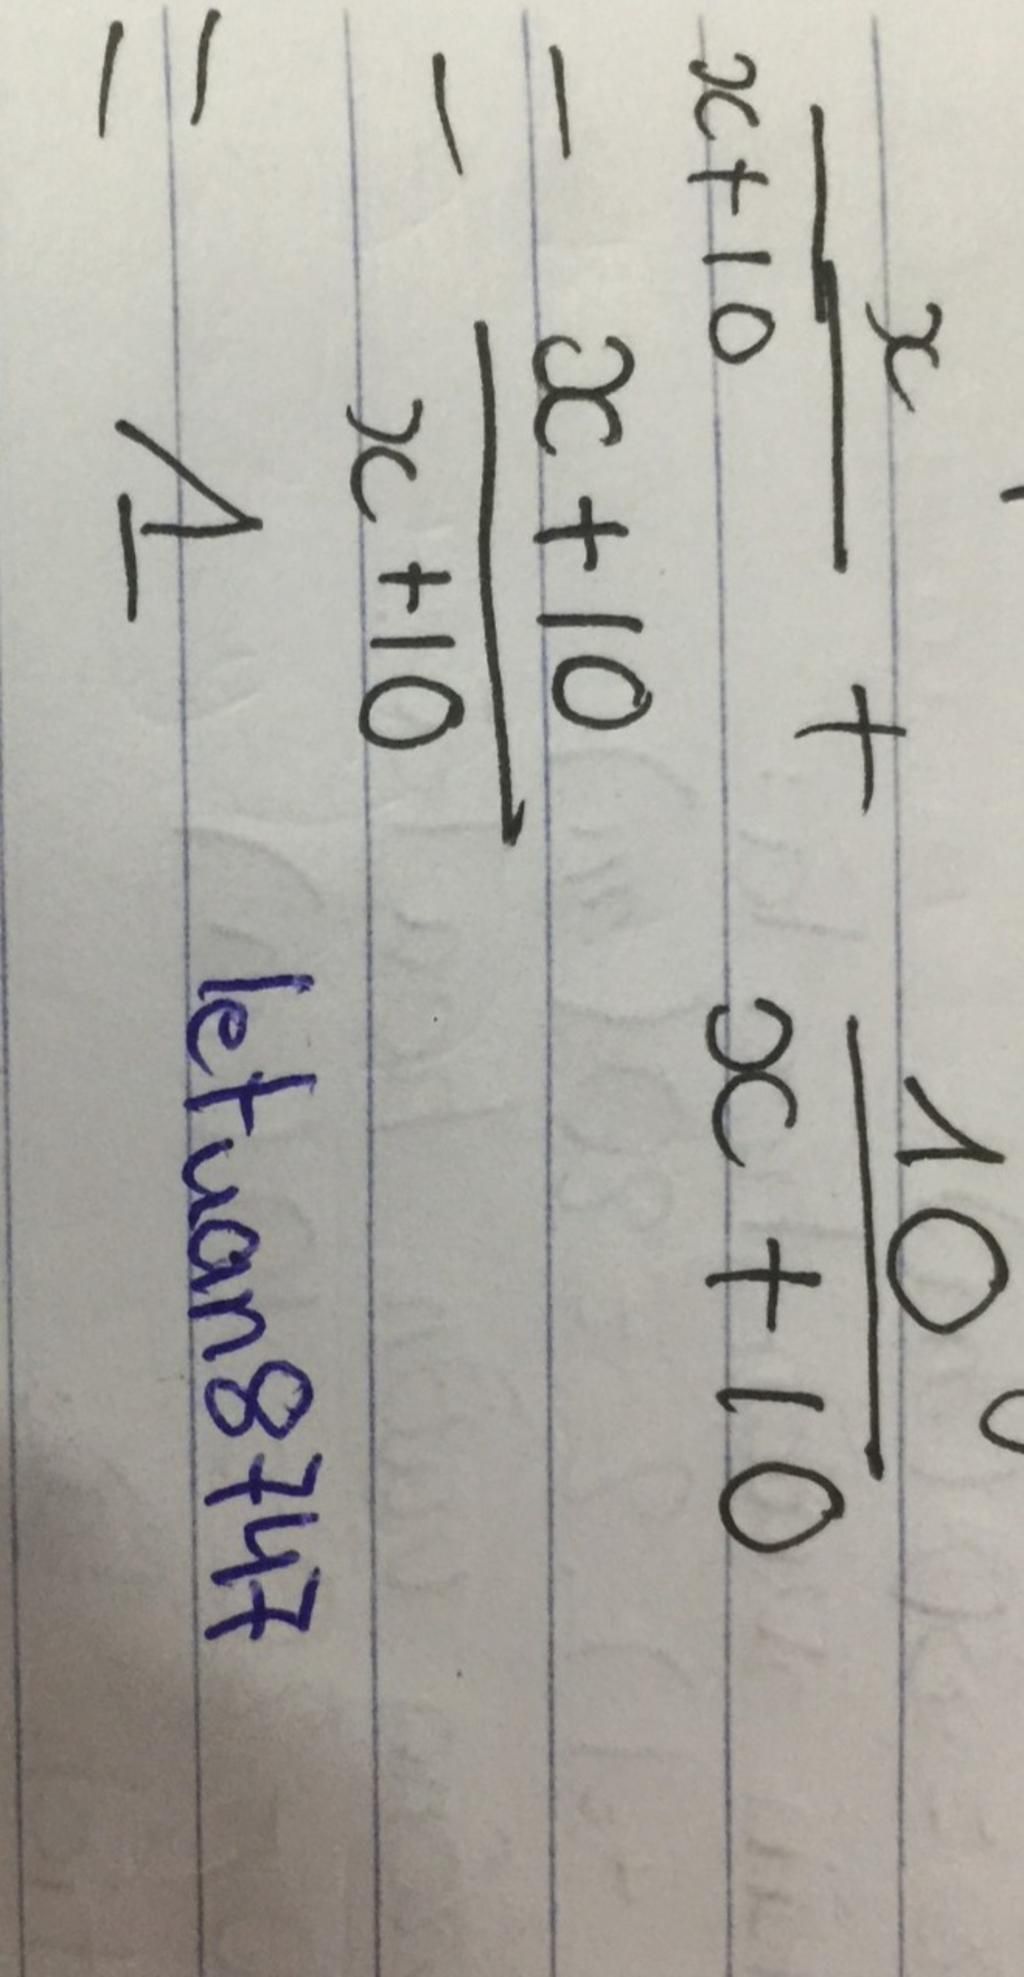 x/(x+10) + 10/(x+10)
= (x+10)/(x+10)
= 1
letuan8747